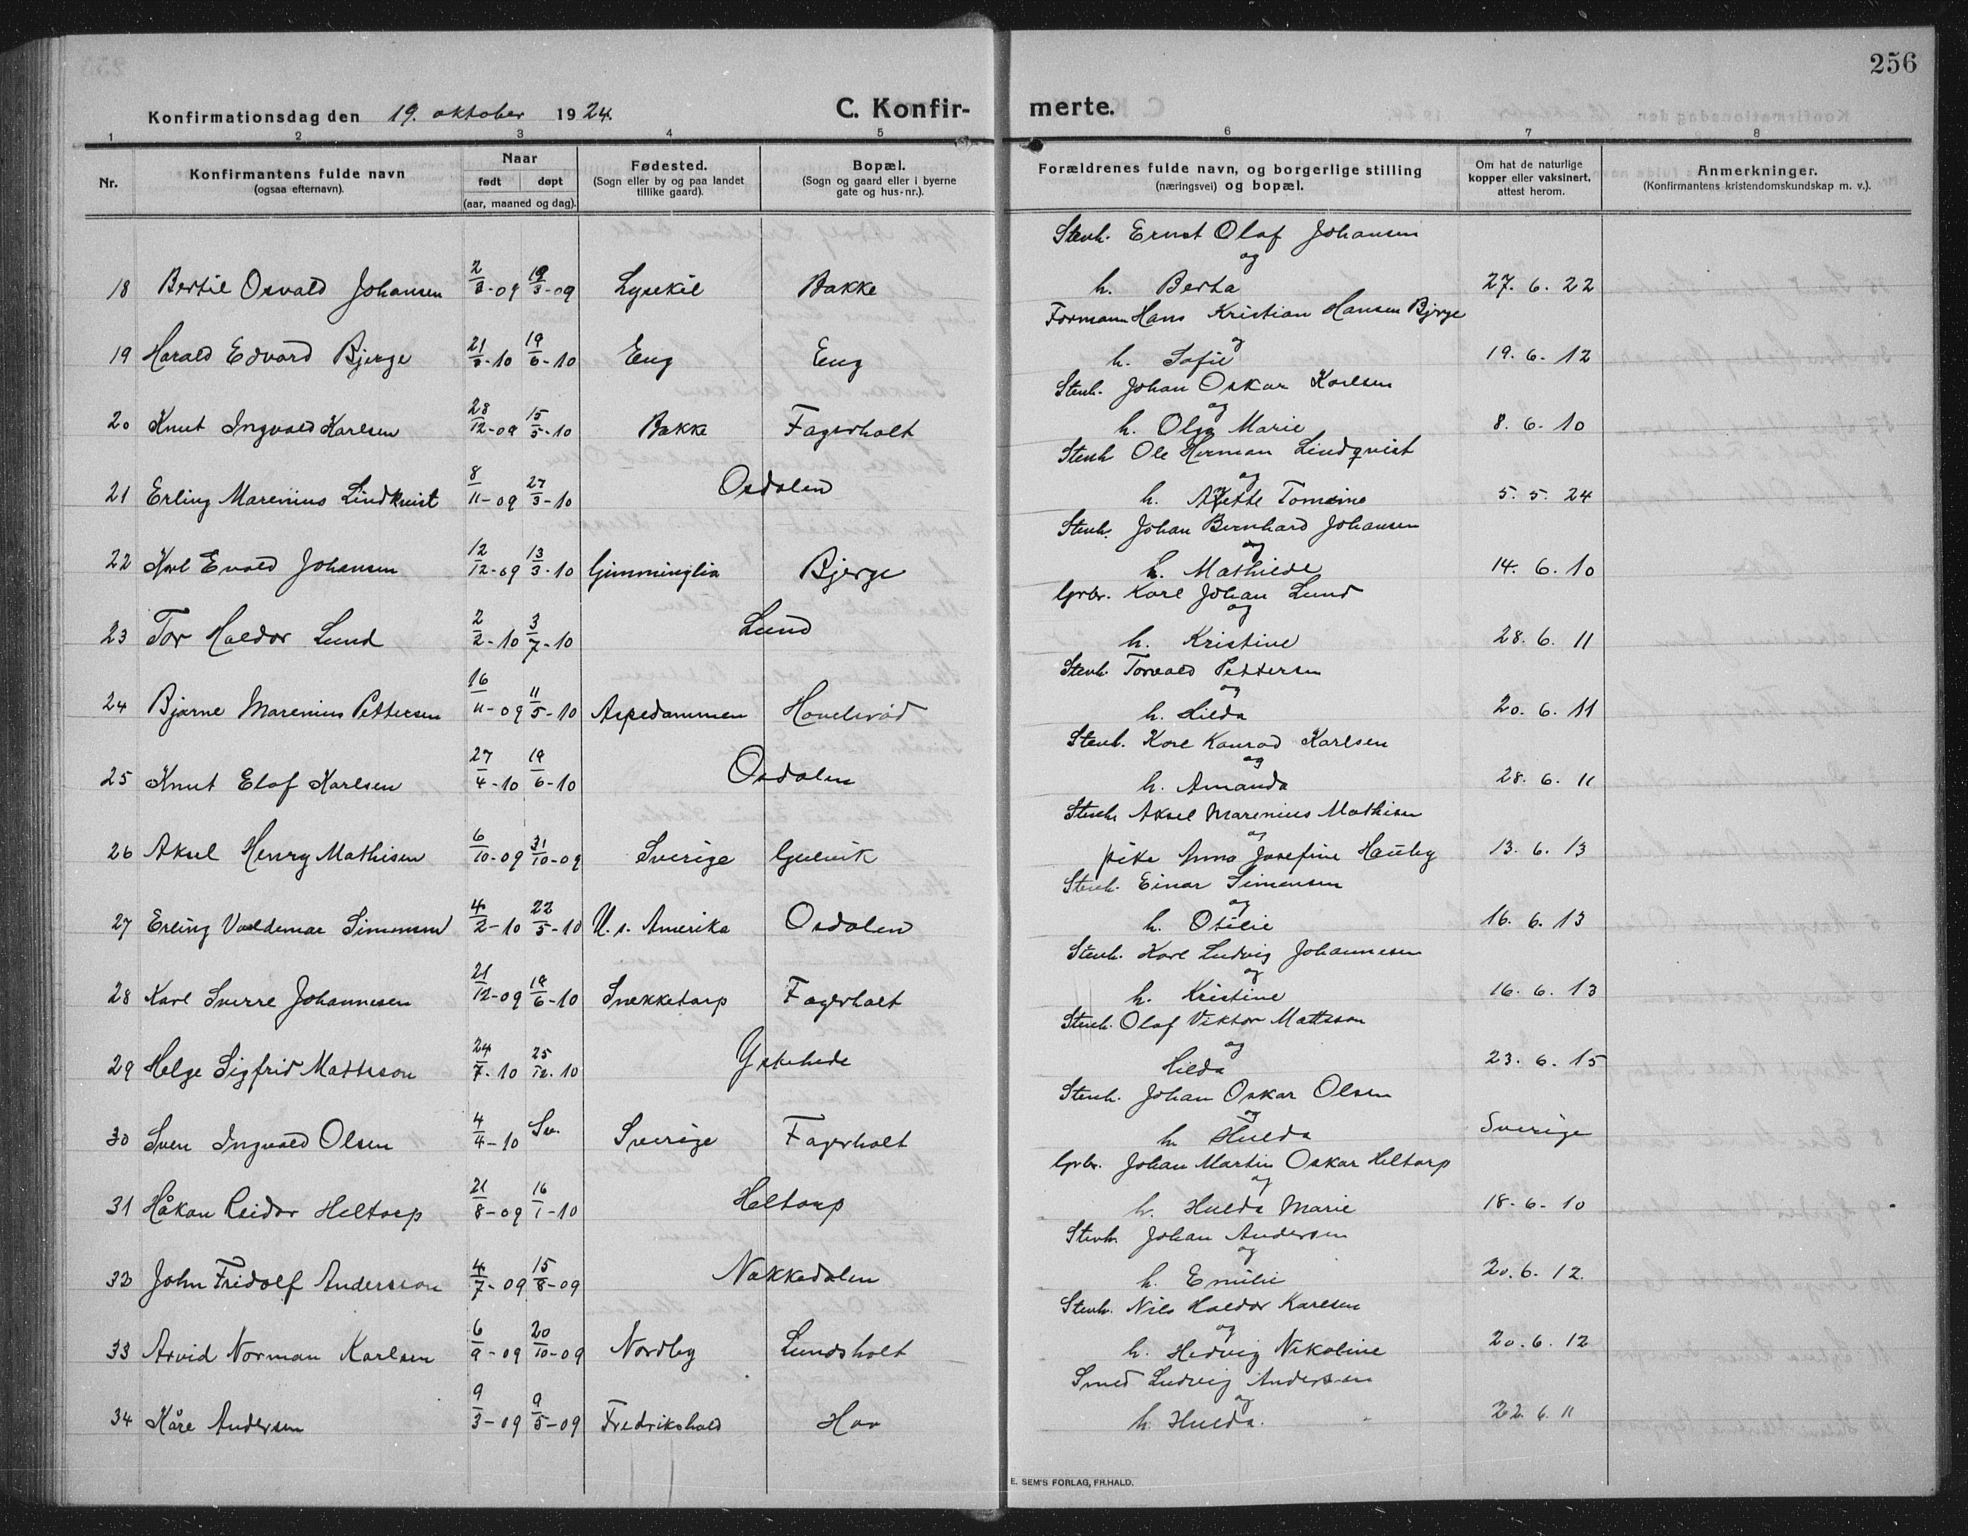 256
Konfirmationsdag den 19. oktober 1924. C. Konfirmerte.
1 2 3 4 5 6 7 8
Nr. Konfirmantens fulde navn (ogsaa efternavn). Naar født døpt (aar, maaned og dag). Fødested. (Sogn eller by og paa landet tillike gaard). Bopæl. (Sogn og gaard eller i byerne gate og hus-nr.). Forældrenes fulde navn, og borgerlige stilling (næringsvei) og bopæl. Om hat de naturlige kopper eller vaksinert, attest herom. Anmerkninger. (Konfirmantens kristendomskundskap m. v.).
Stenh. Ernst Olaf Johansen
og
18 Bertil Osvald Johansen 2/3-09 19/3-09 Lysekil Bakke h. Berta 27. 6. 22
Formann Hans Kristian Hansen Bjerge
og
19 Harald Edvard Bjerge 21/3-10 19/6-10 Eng Eng h. Sofie 19. 6. 12
Stenh. Johan Oskar Karlsen
og
20 Knut Ingvald Karlsen 28/12-09 15/5-10 Bakke Fagerholt h. Olga Marie 8. 6. 10
Stenh Ole Herman Lindqvist
og
21 Erling Marenius Lindkvist 8/11-09 27/3-10 Osdalen h. Anette Tomine 5. 5. 24
Stenh. Johan Bernhard Johansen
og
22 Karl Evald Johansen 12/12-09 13/3-10 Gimminglia Bjerge h. Mathilde 14. 6. 10
Grbr. Karl Johan Lund
og
23 Tor Haldor Lund 2/2-10 3/7-10 Lund h. Kristine 28. 6. 11
Stenh Torvald Pettersen
og
24 Bjarne Marenius Pettersen 16/11-09 11/5-10 Aspedammen Hovelsrød h. Hilda 20. 6. 11
Stenh. Karl Konrad Karlsen
og
25 Knut Elof Karlsen 27/4-10 19/6-10 Osdalen h. Amanda 28. 6. 11
Stenh Aksel Marenius Mathisen
og
26 Aksel Henry Mathisen 6/10-09 31/10-09 Sverige Gulvik pike Anna Josefine Hauby 13. 6. 13
Stenh. Einar Simensen
og
27 Erling Valdemar Simensen 4/2-10 22/5-10 U. s. Amerika Osdalen h. Otilie 16. 6. 13
Stenh. Karl Ludvig Johannesen
og
28 Karl Sverre Johannesen 21/12-09 19/6-10 Snekketorp Fagerholt h. Kristine 16. 6. 13
Stenh. Olaf Viktor Mattsson
og
29 Helge Sigfrid Mattsson 24/7-10 25/12-10 Ystehede Hilda 23. 6. 15
Stenh. Johan Oskar Olsen
og
30 Sven Ingvald Olsen 4/4-10 Sv. Sverige Fagerholt h. Hulda Sverige
Grbr. Johan Martin Oskar Heltorp
og
31 Håkan Reidar Heltorp 21/8-09 16/1-10 Heltorp h. Hulda Marie 18. 6. 10
Stenh. Johan Andersen
og
32 John Fridolf Andersson 4/7-09 15/8-09 Nakkedalen h. Emilie 20. 6. 12.
Stenh. Nils Haldor Karlsen
og
33 Arvid Norman Karlsen 6/9-09 20/10-09 Nordby Lundsholt h. Hedvig Nikoline 20. 6. 12
Smed Ludvig Andersen
og
34 Kåre Andersen 9/3-09 9/5-09 Fredrikshald Hov h. Hulda. 22. 6. 11
E. SEM'S FORLAG, FR.HALD.